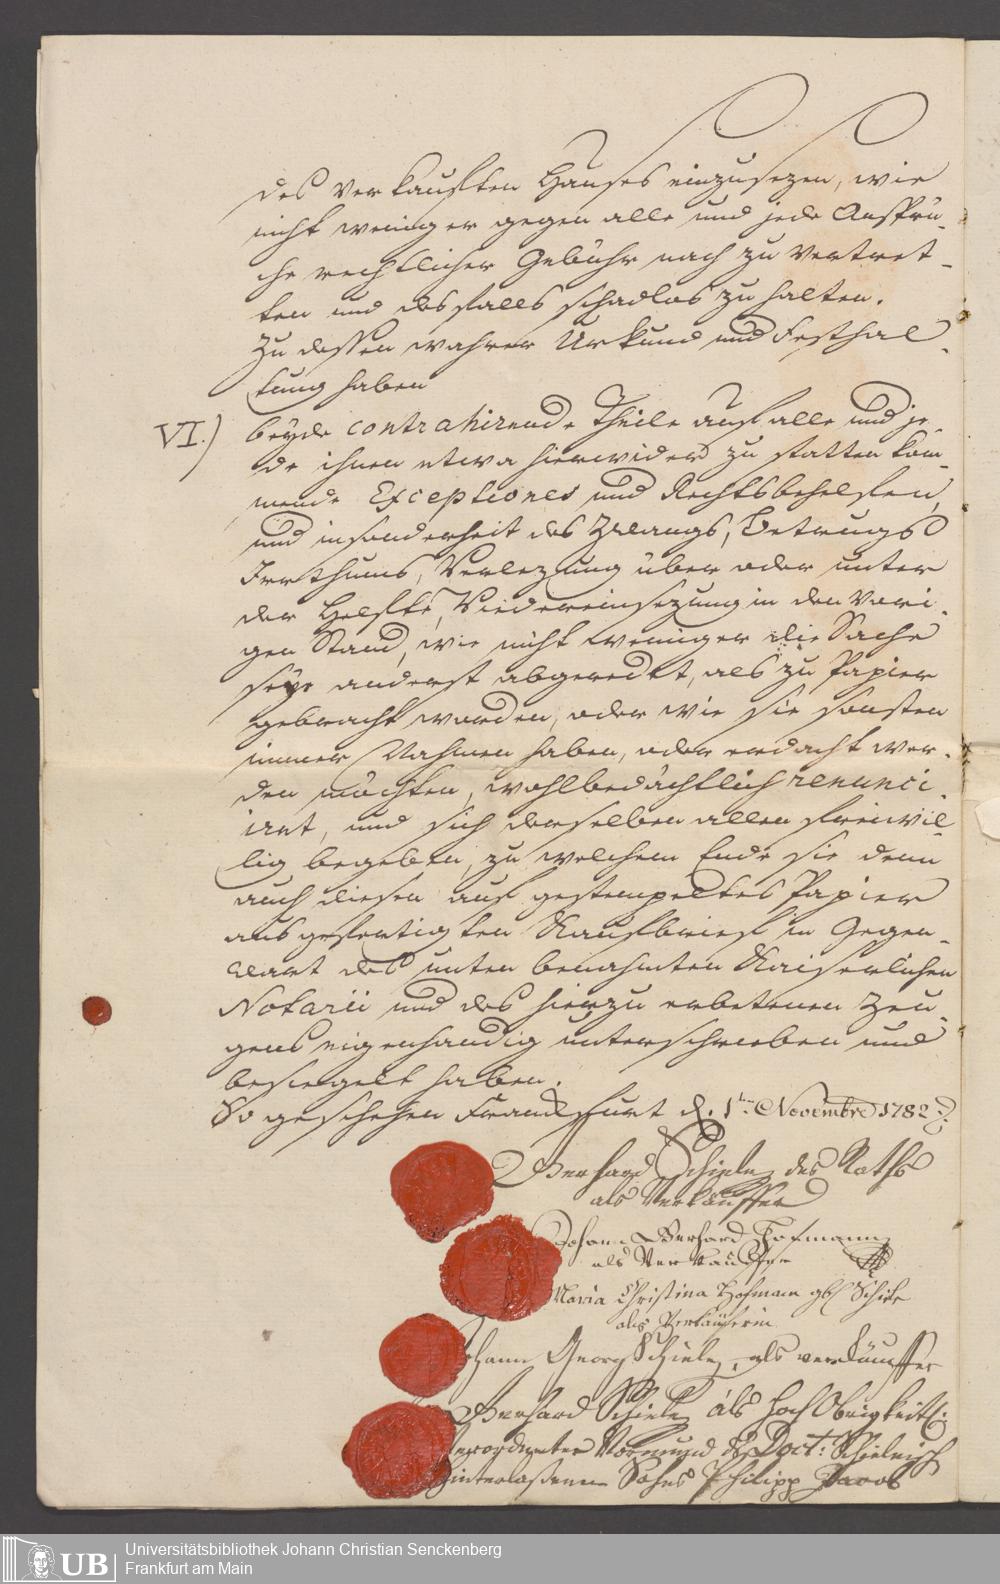 des verkauften Hauses einzusezen, wie
nicht weniger gegen alle und jede Ansprü-
che rechtlicher Gebühr nach zu vertret-
ten und desfalls schadlos zu halten.
Zu dessen wahrer Urkund und Festhal-
tung haben
VI.) beyde contrahirende Theile auf alle und je-
de ihnen etwa hierwider zu statten kom-
mende Exceptiones und Rechtsbehelfen,
und insonderheit des Zwangs, Betrugs
Irrthums, Verlezung über oder unter
der Helfte, Wiedereinsezung in den vori-
gen Stand, wie nicht weniger die Sache
seye anderst abgeredt, als zu Papier
gebracht worden, oder wie sie sonsten
immer Nahmen haben, oder erdacht wer-
den möchten, wohlbedächtlich renunci-
irt, und sich derselben allen freiwil-
lig begeben, zu welchem Ende sie denn
auch diesen auf gestempeltes Papier
ausgefertigten Kaufbrief in Gegen-
wart des unten benahmten Kaiserlichen
Notarii und des hierzu erbetenen Zeu-
gens eigenhändig unterschrieben und
besiegelt haben.
So geschehen Franckfurt d. 1ten Novembre 1782.
Gerhard Schiele des Raths
als Verkäuffer
Johann Gerhard Hofmann
als Verkäuffer
Maria Christina Hofmann gbl Schiele
als Verkäuferin
Johann Georg Schiele, als verkäuffer
Gerhard Schiele als Hoch Obrigkeitl:
verordneter Vormund des Doct: Schieleisch
hinterlaßenen Sohns Philipp Jacob
UB
Universitätsbibliothek Johann Christian Senckenberg
Frankfurt am Main